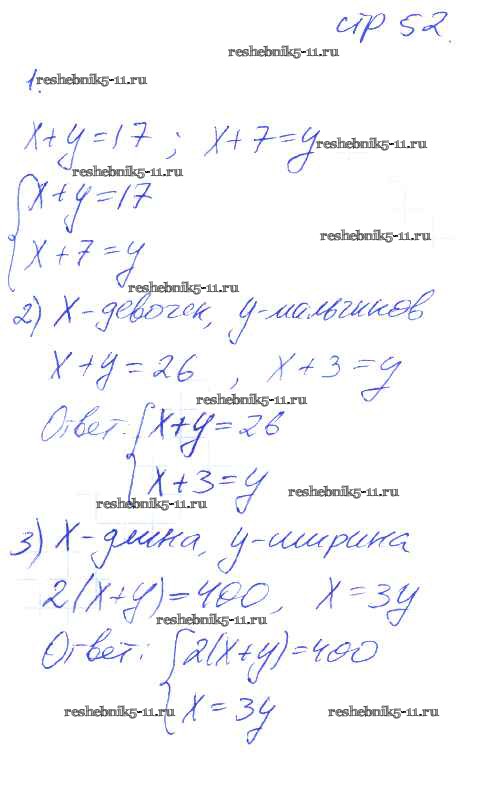 стр 52.
reshebnik5-11.ru
1. reshebnik5-11.ru
x+y=17 ; x+7=y reshebnik5-11.ru
reshebnik5-11.ru
{x+y=17
reshebnik5-11.ru
x+7=y
reshebnik5-11.ru
2) x-девочек, y-мальчиков
x+y=26 , x+3=y
reshebnik5-11.ru
Ответ: {x+y=26
x+3=y reshebnik5-11.ru
reshebnik5-11.ru
3) x-длина, y-ширина
2(x+y)=400, x=3y
reshebnik5-11.ru
Ответ: {2(x+y)=400
x=3y
reshebnik5-11.ru reshebnik5-11.ru